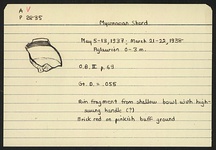 A V
P 2235
Mycenaean Sherd
May 5-13, 1937; March 21-22, 1938
0-3 m.
O.B. III p. 69
Gr. D. = .055
Rim fragment from shallow bowl with high-
swung handle (?)
Brick red on pinkish buff ground